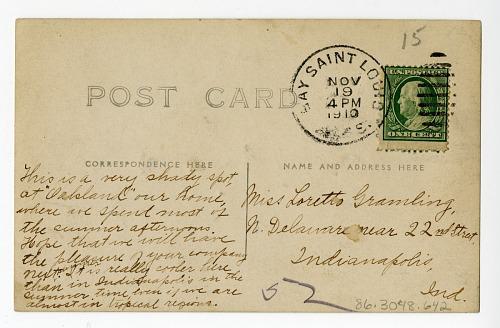 15
BAY SAINT LOUIS
NOV
19
4 PM
1910
U.S. POSTAGE
ONE CENT
POST CARD
CORRESPONDENCE HERE
NAME AND ADDRESS HERE
This is a very shady spot,
at "Oaksland" our home,
where we spend most of
the summer afternoons.
Hope that we will have
the pleasure of your company
next. It is really cooler here
than in Indianapolis in the
summer time, even if we are
almost in tropical regions.
Miss Loretto Gramling,
N. Delaware near 22nd Street
Indianapolis,
Ind.
52
86.3048.642